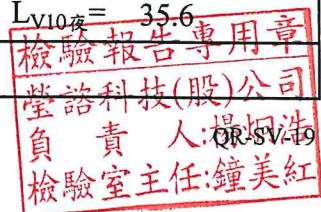 L_V10夜= 35.6
檢驗報告專用章
瑩諮科技(股)公司
負責人:楊炯浩
QR-SV-19
檢驗室主任:鐘美紅